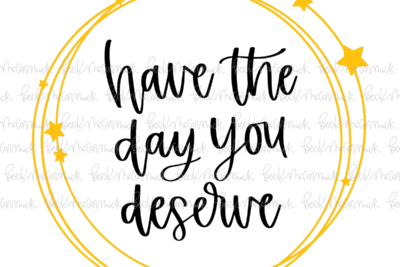 have the
day you
deserve